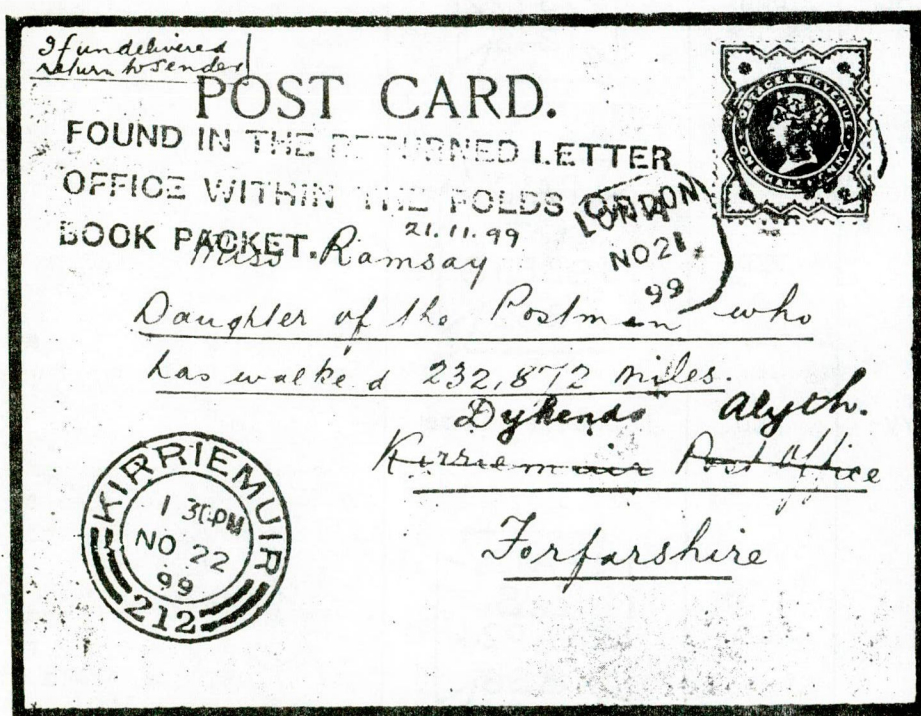 If undelivered
return to sender
POST CARD.
FOUND IN THE RETURNED LETTER
OFFICE WITHIN THE FOLDS OF A
BOOK PACKET.
21.11.99
LONDON
NO 21
99
Miss Ramsay
Daughter of the Postman who
has walked 232,872 miles.
Dykends Alyth.
Kirriemuir Post Office
Forfarshire
KIRRIEMUIR
1 30PM
NO 22
99
212